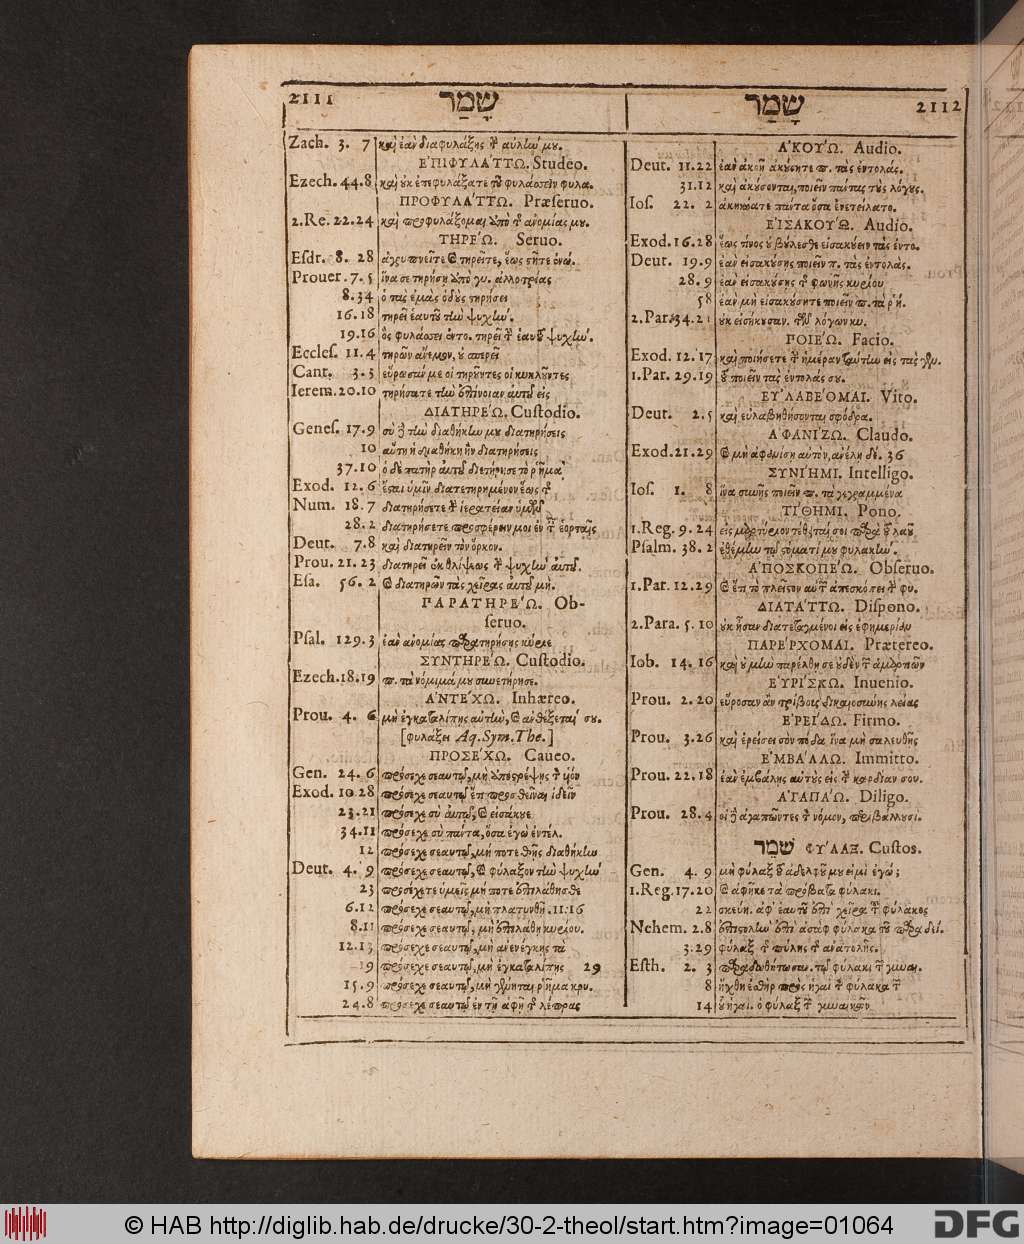 2111 שָׁמַר
Zach. 3. 7 καὶ ἐὰν διαφυλάξης τ αὐλήν μου.
ἘΠΙΦΥΛΑ΄ΤΤΩ. Studeo.
Ezech. 44.8 καὶ οὐκ ἐπεφυλάξατε τοῦ φυλάσσειν φυλα.
ΠΡΟΦΥΛΑ΄ΤΤΩ. Præseruo.
2.Re. 22.24 καὶ προφυλάξομαι ἀπὸ τ ἀνομίας μου.
ΤΗΡΕ΄Ω. Seruo.
Esdr. 8. 28 ἀγρυπνεῖτε καὶ τηρεῖτε, ἕως στῆτε
Prouer. 7. 5 ἵνα σε τηρήση ἀπὸ γυ. ἀλλοτρίας
8.34 ὁ τὰς ἐμὰς ὁδοὺς τηρήσει
16.18 τηρεῖ ἑαυτοῦ τὴν ψυχήν.
19.16 ὃς φυλάσσει ἐντο. τηρεῖ τ ἑαυτοῦ ψυχήν.
Eccles. 11.4 τηρῶν ἄνεμον, οὐ σπερεῖ
Cant. 3.3 εὕροσάν με οἱ τηροῦντες οἱ κυκλοῦντες
Ierem. 20.10 τηρήσατε τὴν ἐπίνοιαν αὐτοῦ εἰς
ΔΙΑΤΗΡΕ΄Ω. Custodio.
Genes. 17.9 σὺ δὲ τὴν διαθήκην μου διατηρήσεις
10 αὕτη ἡ διαθήκη ἣν διατηρήσεις
37.10 ὁ δὲ πατὴρ αὐτοῦ διετήρησε τὸ ῥῆμα
Exod. 12.6 ἔσται ὑμῖν διατετηρημένον ἕως τ
Num. 18.7 διατηρήσετε τ ἱερατείαν ὑμῶν
28.2 διατηρήσετε προσφέρειν μοι ἐν τ ἑορταῖς
Deut. 7.8 καὶ διατηρεῖν τὸν ὅρκον.
Prou. 21.23 διατηρεῖ ἐκ θλίψεως τ ψυχὴν αὐτοῦ.
Esa. 56.2 καὶ διατηρῶν τὰς χεῖρας αὐτοῦ μὴ.
ΠΑΡΑΤΗΡΕ΄Ω. Ob-
seruo.
Psal. 129.3 ἐὰν ἀνομίας παρατηρήσης κύριε
ΣΥΝΤΗΡΕ΄Ω. Custodio.
Ezech. 18.19 π. τὰ νόμιμά μου συνετήρησε.
ἈΝΤΕ΄ΧΩ. Inhæreo.
Prou. 4. 6 μὴ ἐγκαταλίπης αὐτὴν, καὶ ἀνθέξεταί σου.
[φυλάξει Aq. Sym. The.]
ΠΡΟΣΕ΄ΧΩ. Caueo.
Gen. 24. 6 πρόσεχε σεαυτῷ, μὴ ἀποστρέψης τ υἱόν
Exod. 10 28 πρόσεχε σεαυτῷ ἔτι προσθεῖναι ἰδεῖν
23.21 πρόσεχε σὺ αὐτῷ, καὶ εἰσάκουε
34.11 πρόσεχε σὺ πάντα, ὅσα ἐγὼ ἐντέλ.
12 πρόσεχε σεαυτῷ, μή ποτε θῆς διαθήκην
Deut. 4. 9 πρόσεχε σεαυτῷ, καὶ φύλαξον τὴν ψυχήν
23 προσέχετε ὑμεῖς μή ποτε ἐπιλάθησθε
6.12 πρόσεχε σεαυτῷ, μὴ πλατυνθῆ. 11.16
8.11 πρόσεχε σεαυτῷ, μὴ ἐπιλάθη κυρίου.
12.13 πρόσεχε σεαυτῷ, μὴ ἀνενέγκης τὰ
19 πρόσεχε σεαυτῷ, μὴ ἐγκαταλίπης 29
15.9 πρόσεχε σεαυτῷ, μὴ γένηται ῥῆμα κρυ.
24.8 πρόσεχε σεαυτῷ ἐν τῇ ἁφῇ τ λέπρας
שָׁמַר 2112
ἈΚΟΥ΄Ω. Audio.
Deut. 11.22 ἐὰν ἀκοῇ ἀκούσητε π. τὰς ἐντολάς.
31.12 καὶ ἀκούσονται, ποιεῖν πάντας τοὺς λόγους.
Ios. 22. 2 ἀκηκόατε πάντα ὅσα ἐνετείλατο.
ἘΙΣΑΚΟΥ΄Ω. Audio.
Exod. 16.28 ἕως τίνος οὐ βούλεσθε εἰσακούειν τὰς ἐντο.
Deut. 19.9 ἐὰν εἰσακούσης ποιεῖν π. τὰς ἐντολάς.
28.9 ἐὰν εἰσακούσης τ φωνῆς κυρίου
58 ἐὰν μὴ εἰσακούσητε ποιεῖν π. τὰ ῥή.
2.Par. 34.21 οὐκ εἰσήκουσαν. τῶν λόγων κυ.
ΠΟΙΕ΄Ω. Facio.
Exod. 12.17 καὶ ποιήσετε τ ἡμέραν ταύτην εἰς τὰς γεν.
1.Par. 29.19 τοῦ ποιεῖν τὰς ἐντολάς σου.
ἘΥΛΑΒΕ΄ΟΜΑΙ. Vito.
Deut. 2.5 καὶ εὐλαβηθήσονται σφόδρα.
ἈΦΑΝΙ΄ΖΩ. Claudo.
Exod. 21.29 καὶ μὴ ἀφανίση αὐτὸν, ἀνέλη δὲ. 36
ΣΥΝΙ΄ΗΜΙ. Intelligo.
Ios. 1. 8 ἵνα συνῆς ποιεῖν π. τὰ γεγραμμένα
ΤΙ΄ΘΗΜΙ. Pono.
1.Reg. 9.24 εἰς μαρτύριον τέθειταί σοι παρὰ τοῦ λαοῦ
Psalm. 38.2 ἐθέμην τῷ στόματί μου φυλακήν.
ἈΠΟΣΚΟΠΕ΄Ω. Obseruo.
1.Par. 12.29 καὶ ἔτι τὸ πλεῖστον αὐτῶν ἀπεσκόπει τ φυ.
ΔΙΑΤΑ΄ΤΤΩ. Dispono.
2.Para. 5.10 οὐκ ἦσαν διατεταγμένοι εἰς ἐφημερίαν
ΠΑΡΕ΄ΡΧΟΜΑΙ. Prætereo.
Iob. 14.16 καὶ οὐ μὴν παρέλθη σε οὐδὲν τ ἁμαρτιῶν
ἘΥΡΙ΄ΣΚΩ. Inuenio.
Prou. 2.20 εὕροσαν ἂν τρίβους δικαιοσύνης λείας
ἘΡΕΙ΄ΔΩ. Firmo.
Prou. 3.26 καὶ ἐρείσει σὸν πόδα ἵνα μὴ σαλευθῆς
ἘΜΒΑ΄ΛΛΩ. Immitto.
Prou. 22.18 ἐὰν ἐμβάλης αὐτοὺς εἰς τ καρδίαν σου.
ἈΓΑΠΑ΄Ω. Diligo.
Prou. 28.4 οἱ δὲ ἀγαπῶντες τ νόμον, περιβάλλουσι.
שֹׁמֵר ΦΥ΄ΛΑΞ. Custos.
Gen. 4. 9 μὴ φύλαξ τοῦ ἀδελφοῦ μου εἰμὶ ἐγώ;
1.Reg. 17.20 καὶ ἀφῆκε τὰ πρόβατα φύλακι.
22 σκεύη. ἀφ᾽ ἑαυτοῦ ἐπὶ χεῖρα τ φύλακος
Nehem. 2.8 ἐπιστολὴν ἐπὶ ἀσὰφ φύλακα τοῦ παραδεί.
3.29 φύλαξ τ πύλης τ ἀνατολῆς.
Esth. 2. 3 παραδωθήτωσαν. τῷ φύλακι τ γυναι.
8 ἤχθη ἐσθὴρ πρὸς ἡγαὶ τ φύλακα τ
14 οὗ ἡγαὶ. ὁ φύλαξ τ γυναικῶν
© HAB http://diglib.hab.de/drucke/30-2-theol/start.htm?image=01064
DFG